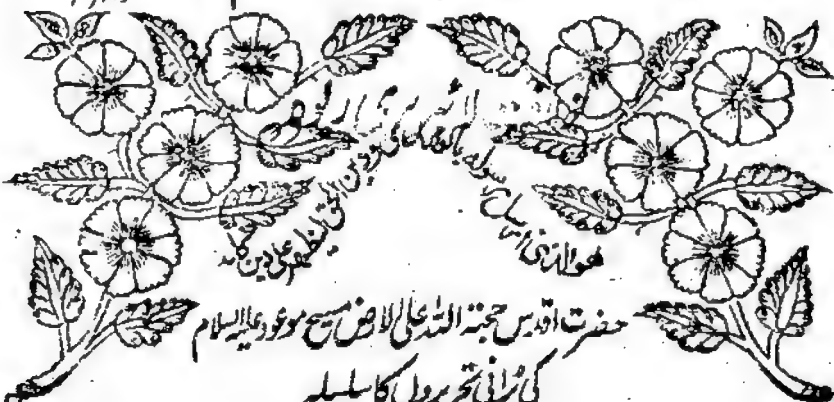 هوالذی ارسل رسوله بالهدی و دین الحق لیظهره علی الدین کله
حضرت اقدس حجۃ اللہ علی الارض مسیح موعود علیہ السلام
کی پُرانی تحریروں کا سلسلہ